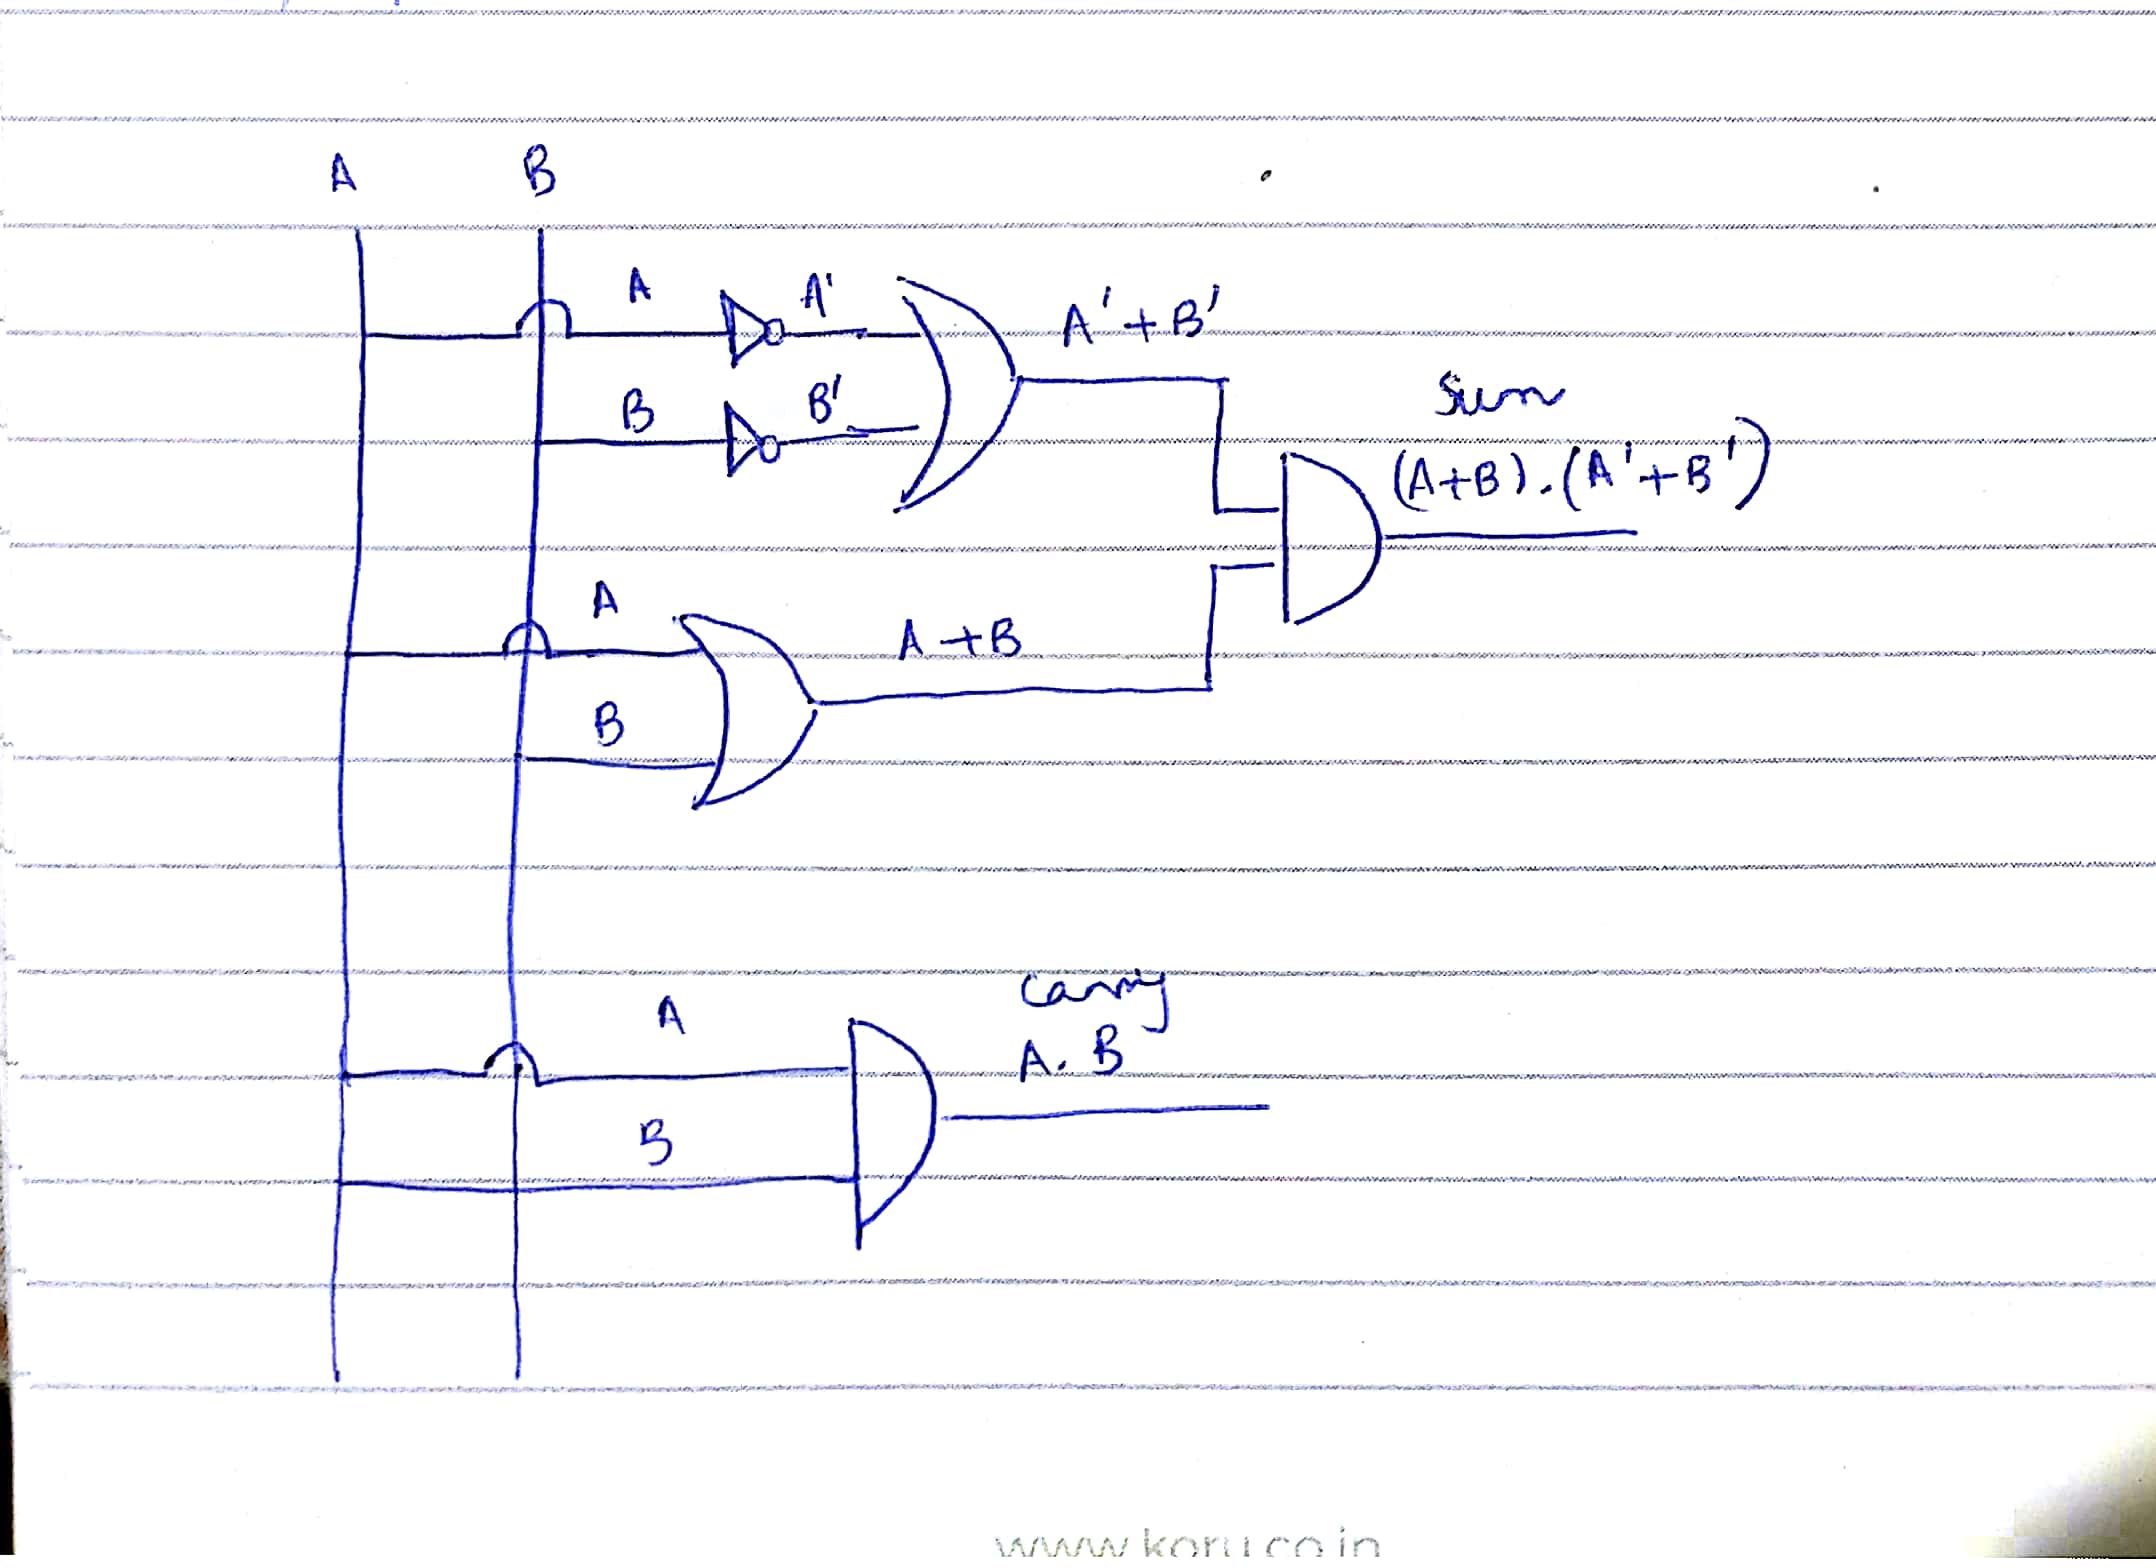 A B
A A' A' + B'
B B'
Sum
(A+B).(A'+B')
A
A + B
B
Carry
A
A. B
B
www.koru.co.in